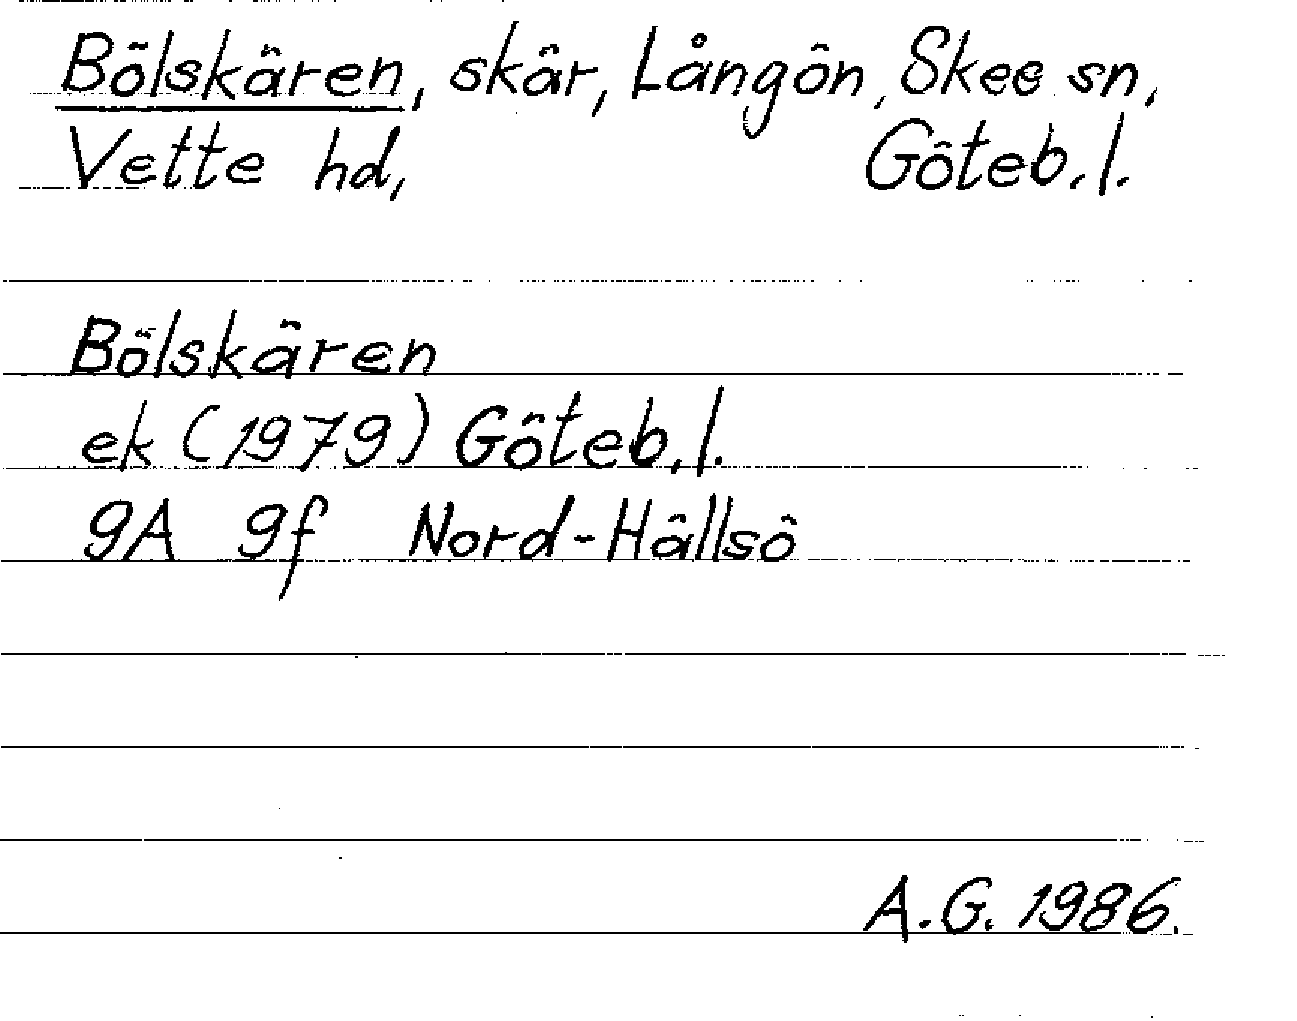 Bölskären, skär, Långön, Skee sn,
Vette hd, Göteb. l.
Bölskären
ek (1979) Göteb. l.
9A 9f Nord-Hällsö
A.G. 1986.